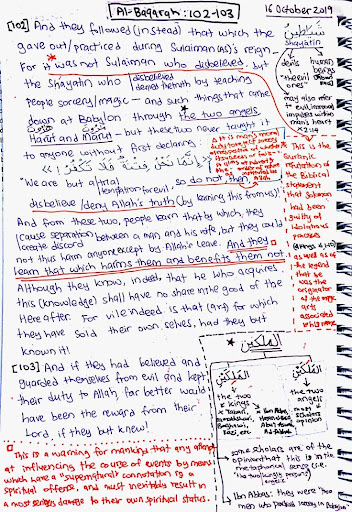 Al-Baqarah: 102-103
16 October 2019
[102] And they followed (instead) that which the
gave out/practiced during Sulaiman (as)'s reign
For it was not Sulaiman who disbelieved, but
the Shayatin who disbelieved denied the truth by teaching
people sorcery/magic — and such things that came
down at Babylon through the two angels,
Harut and Marut — but these two never taught it
to anyone without first declaring:
إنما نحن فتنة فلا تكفر
We are but a (trial temptation for evil), so do not then,
disbelieve/deny Allah's truth (by learning this from us)!
And from these two, people learn that by which they
(cause separation create discord) between a man and his wife, but they could
not thus harm anyone except by Allah's leave. And they
learn that which harms them and benefits them not
Although they know, indeed, that he who acquires
this (knowledge) shall have no share in the good of the
Hereafter. For vile indeed is that (art) for which
they have sold their own selves, had they but
known it!
[103] And if they had believed and
guarded themselves from evil and kept
their duty to Allah, far better would
have been the reward from their
Lord, if they but knew!
This is a warning for mankind that any attempt
at influencing the course of events by means
which have a "supernatural" connotation is a
spiritual offense, and must inevitably result in
a most serious damage to their own spiritual status.
شياطين
Shayatin
devils
"the evil ones"
human beings
may also refer
to evil, immoral
impulses within
man's heart
* 2:14
* This is the
Quranic
refutation of
the Biblical
statements
that Solomon
had been
guilty of
idolatrous
practices
as well as of
the legend
that he was
the originator
of the magic
arts
associated
w his name
الملكين
the two
kings
* Tabari,
Zamakhshari,
Baghawi,
Razi, etc
* Ibn Abbas,
the two
angels
most
scholars
opinion
some scholars are of the
opinion that this is in the
metaphorical sense
Ibn Abbas: they were "two
men who practiced sorcery in Babylon"